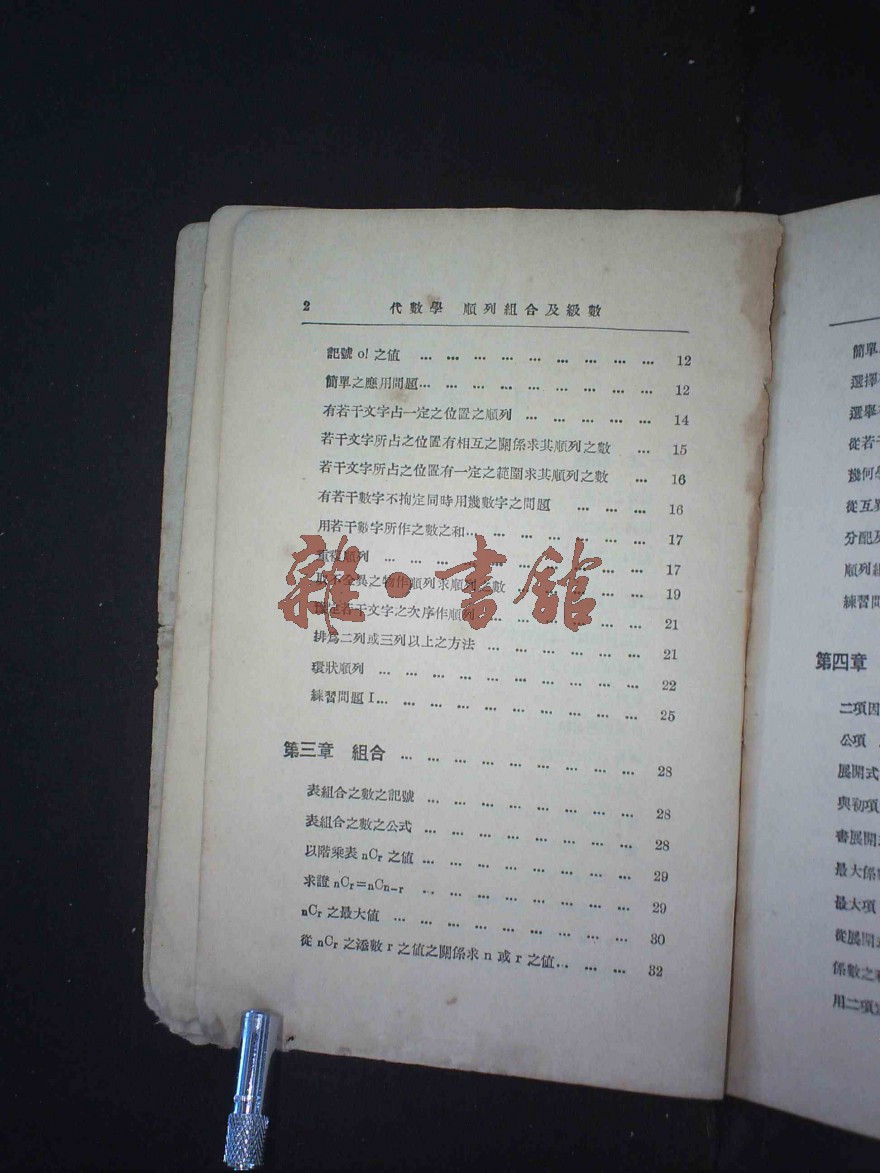 2 代數學 順列組合及級數
記號 o! 之值 … … … … … … … … … 12
簡單之應用問題… … … … … … … … … 12
有若干文字占一定之位置之順列 … … … … … 14
若干文字所占之位置有相互之關係求其順列之數 … 15
若干文字所占之位置有一定之範圍求其順列之數 … 16
有若干數字不拘定同時用幾數字之問題 … … … 16
用若干數字所作之數之和… … … … … … … 17
重複順列 … … … … … … … … … … 17
不全異之物作順列求順列之數 … … … … … … 19
若干文字之次序作順列 … … … … … … 21
排爲二列或三列以上之方法 … … … … … … 21
環狀順列 … … … … … … … … … … 22
練習問題 I… … … … … … … … … … 25
第三章 組合 … … … … … … … … … 28
表組合之數之記號 … … … … … … … … 28
表組合之數之公式 … … … … … … … … 28
以階乘表 nCr 之值 … … … … … … … … 29
求證 nCr=nCn-r … … … … … … … … 29
nCr 之最大值 … … … … … … … … … 30
從 nCr 之添數 r 之值之關係求 n 或 r 之值… … … 32
雜·書館
簡單
選擇
選舉
從若干
幾何學
從互異
分配及
順列組
練習問
第四章
二項因
公項
展開式
與初項
書展開
最大係數
最大項
從展開式
係數之
用二項